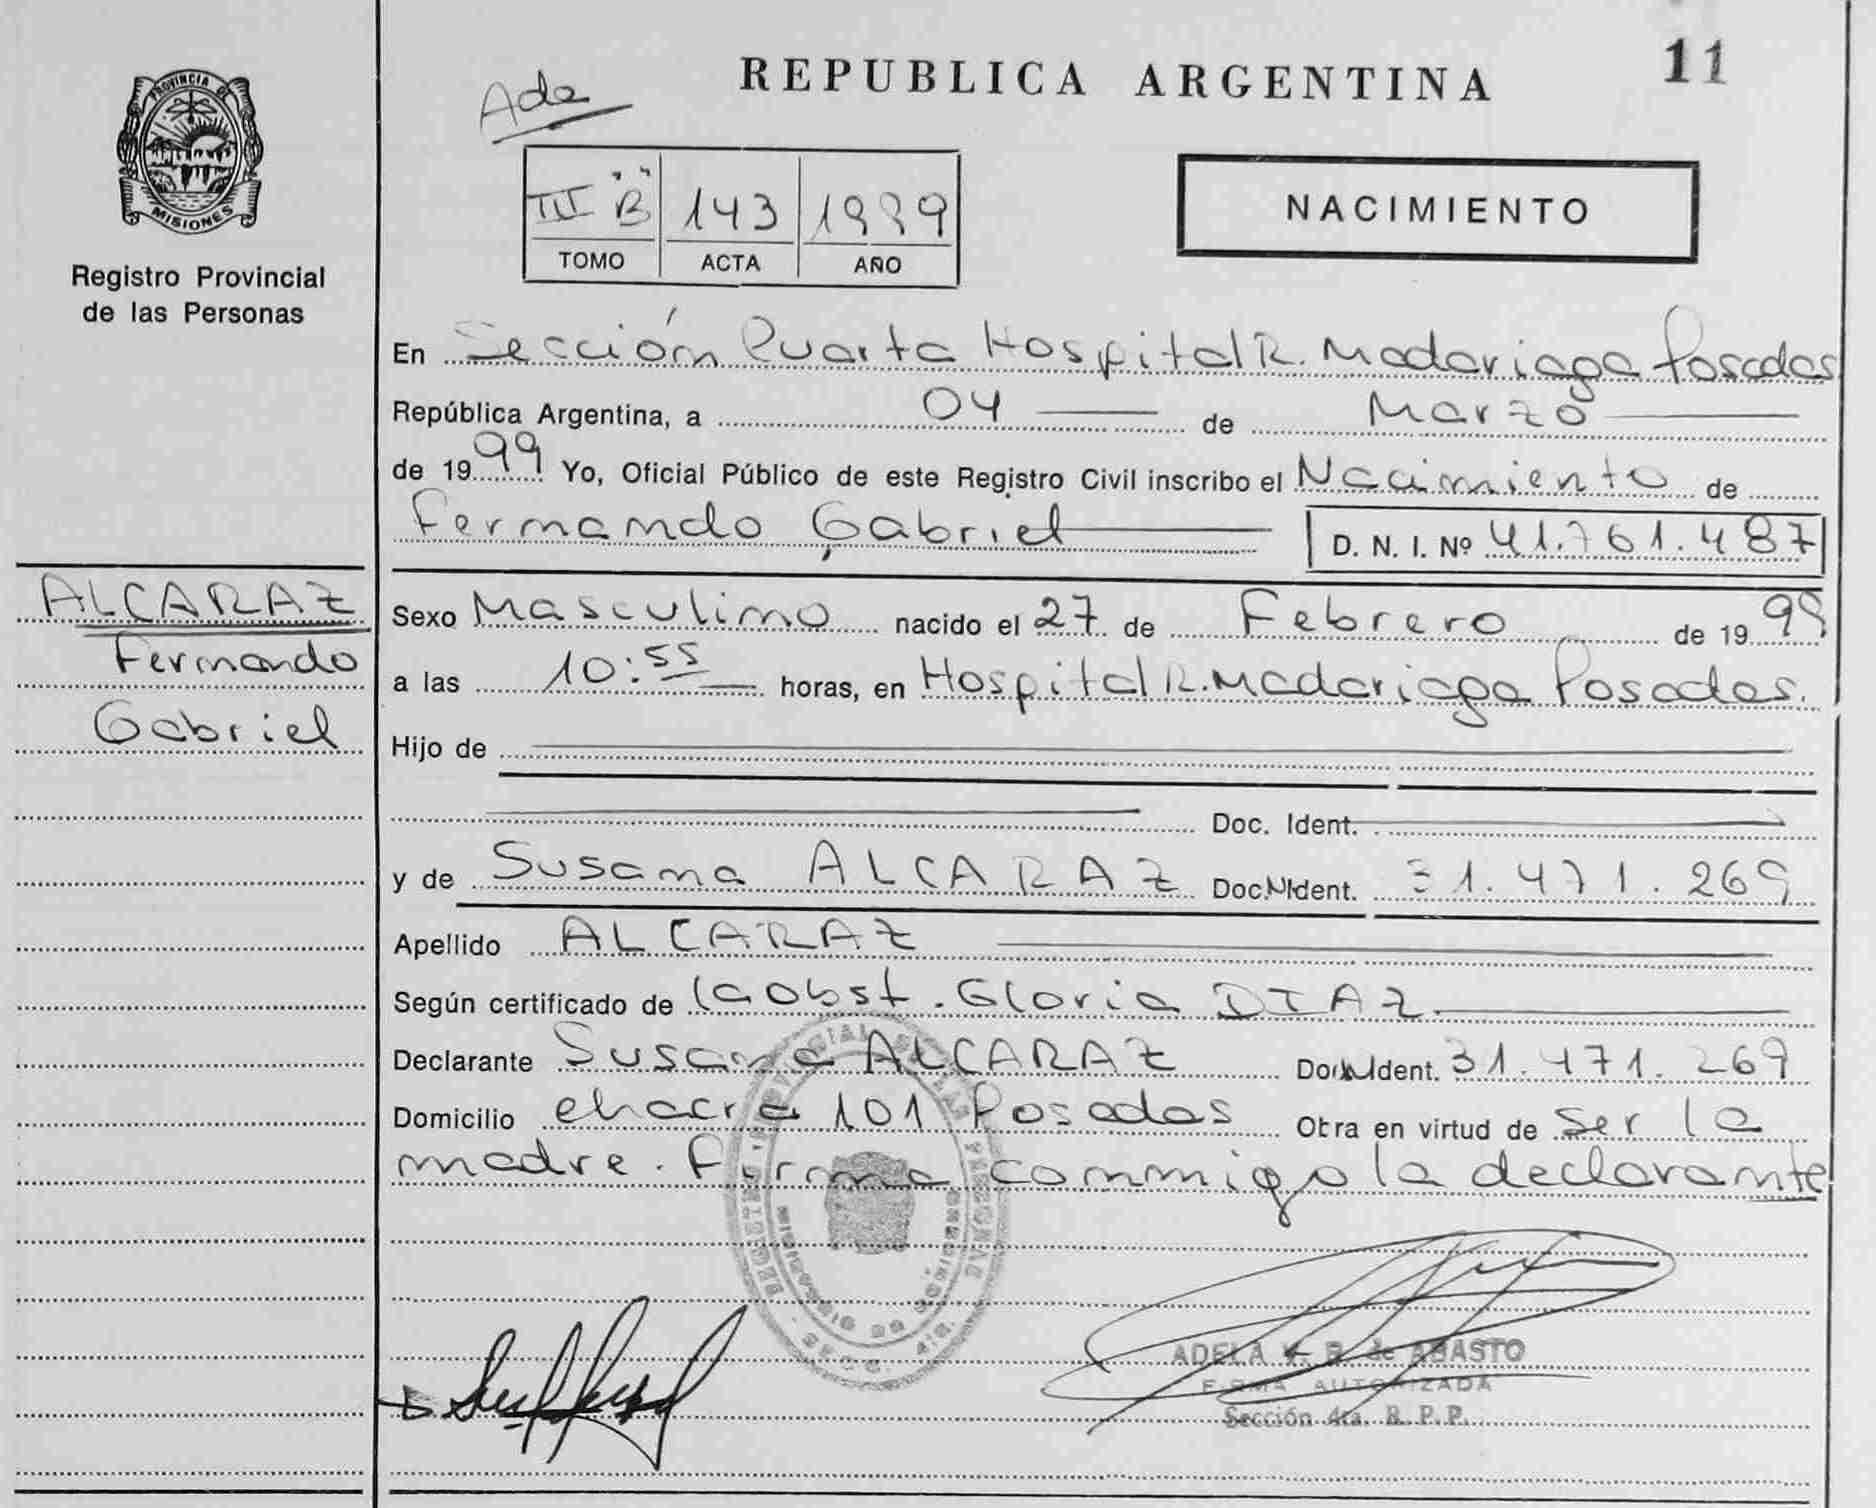 11
REPUBLICA ARGENTINA
Ada
PROVINCIA DE
MISIONES
III "B" 143 1999
TOMO ACTA AÑO
NACIMIENTO
Registro Provincial
de las Personas
En Sección Cuarta Hospital R. Madariaga Posadas
República Argentina, a 04 de Marzo
de 1999 Yo, Oficial Público de este Registro Civil inscribo el Nacimiento de
Fernando Gabriel D. N. I. Nº 41.761.487
ALCARAZ
Fernando
Gabriel
Sexo Masculino nacido el 27 de Febrero de 1999
a las 10:55 horas, en Hospital R. Madariaga Posadas.
Hijo de
Doc. Ident.
y de Susana ALCARAZ Doc. Ident. 31.471.269
Apellido ALCARAZ
Según certificado de la Obst. Gloria DIAZ
Declarante Susana ALCARAZ Doc. Ident. 31.471.269
Domicilio chacra 101 Posadas Obra en virtud de ser la
madre. Firma conmigo la declarante
ADELA V. B. de ABASTO
FIRMA AUTORIZADA
Sección 4ta. R. P. P.